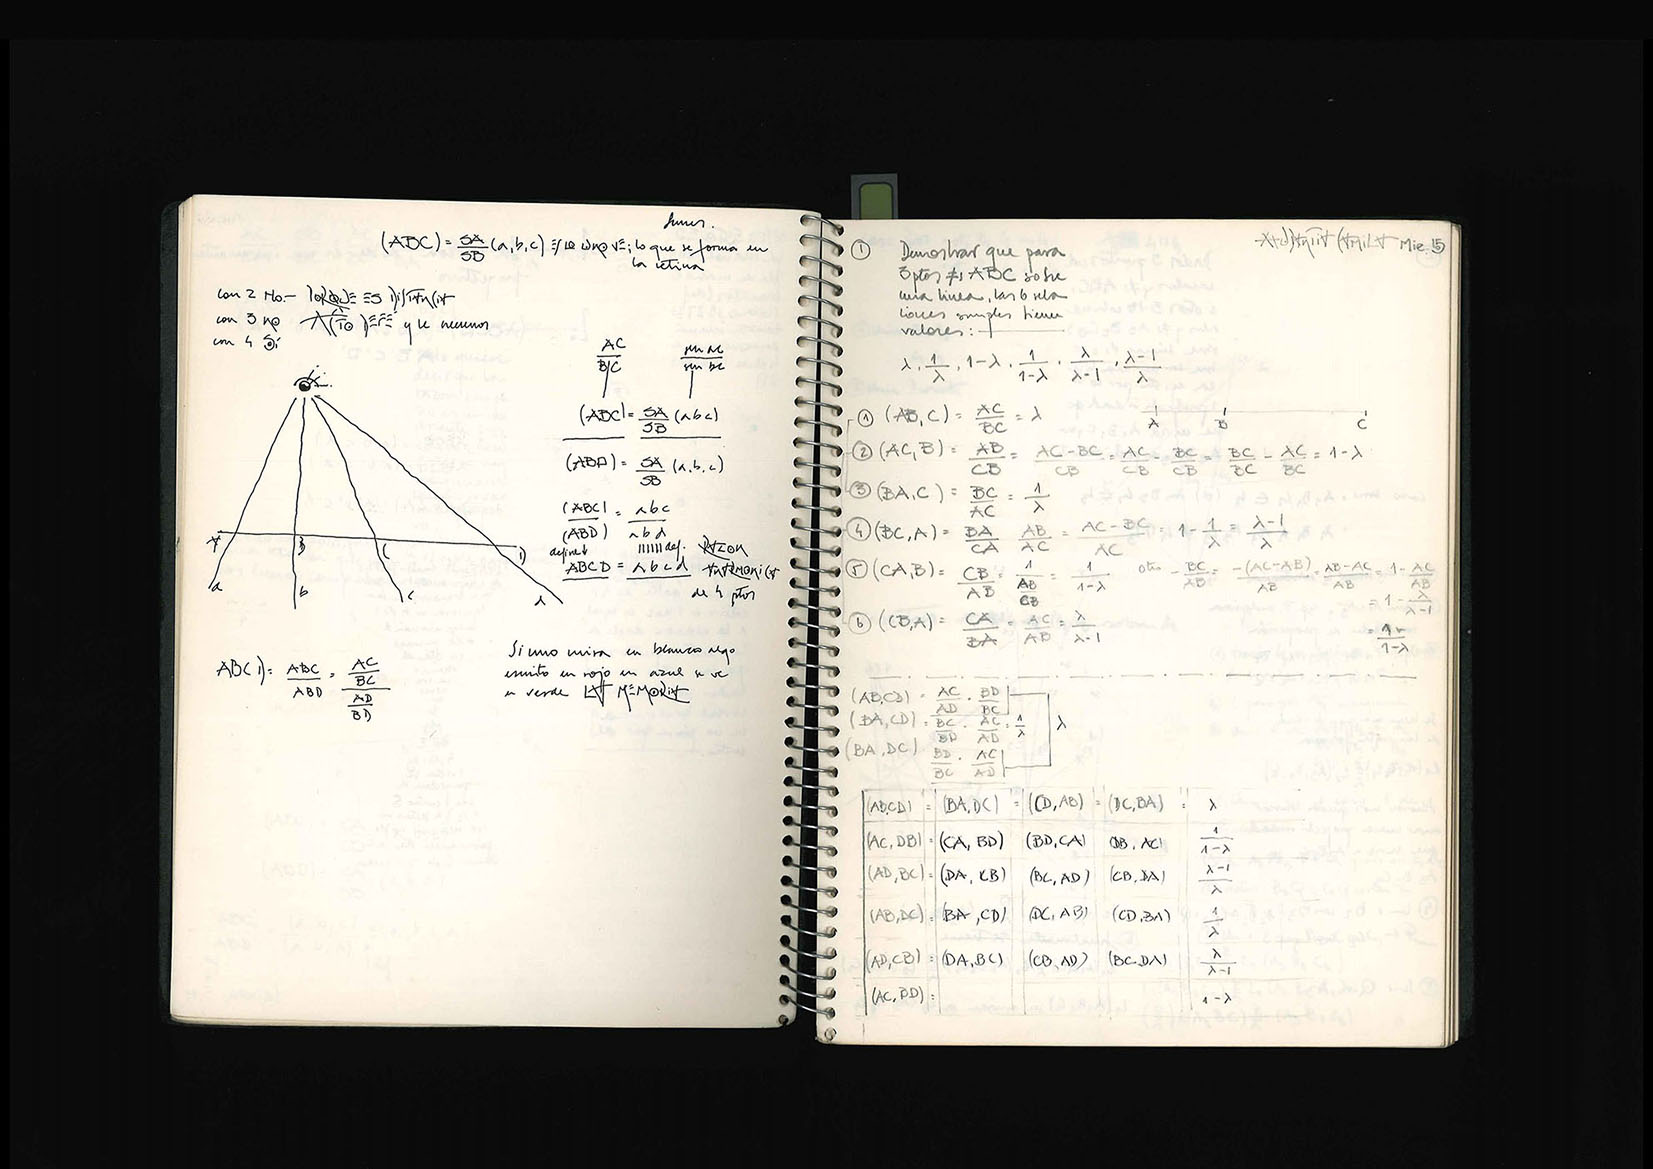 lunes.
(ABC) = SA/SB (a,b,c) lo que se forma en
la retina
con 2 No.- PORQUE ES DISTANCIA
con 3 no y le neumos
con 4 Sí
AC/BC sen ac/sen bc
(ABC) = SA/SB (abc)
(ABD) = SA/SB (a,b,c)
(ABC)/(ABD) = abc/abd
def. RAZON
ABCD = abcd ARMONICA
de 4 ptos
A B C D
a b c d
ABCD = ABC/ABD = AC/BC / AD/BD
Si uno mira en blanco algo
escrito en rojo en azul se ve
en verde LA MEMORIA
Mie 15
① Demostrar que para
3 ptos ≠s ABC sobre
una linea, las 6 rela
ciones simples tienen
valores:
λ, 1/λ, 1-λ, 1/1-λ, λ/λ-1, λ-1/λ
① (AB,C) = AC/BC = λ A B C
② (AC,B) = AB/CB = AC-BC/CB = AC/CB - BC/CB = BC/BC - AC/BC = 1-λ
③ (BA,C) = BC/AC = 1/λ
④ (BC,A) = BA/CA AB/AC = AC-BC/AC = 1 - 1/λ = λ-1/λ
⑤ (CA,B) = CB/AB = 1/AB/CB = 1/1-λ otro - BC/AB = -(AC-AB)/AB = AB-AC/AB = 1 - AC/AB
= 1 - λ/λ-1
⑥ (CB,A) = CA/BA = AC/AB = λ/λ-1
1/1-λ
(AB,CD) = AC/AD . BD/BC
(BA,CD) = BC/BD . AC/AD = 1/λ λ
(BA,DC) BD/BC . AC/AD
(ABCD) = (BA,DC) = (CD,AB) = (DC,BA) = λ
(AC,DB) = (CA,BD) (BD,CA) DB,AC) 1/1-λ
(AD,BC) = (DA,CB) (BC,AD) (CB,DA) λ-1/λ
(AB,DC) = (BA,CD) (DC,AB) (CD,BA) 1/λ
(AD,CB) = (DA,BC) (CB,AD) (BC,DA) λ/λ-1
(AC,BD) = 1-λ